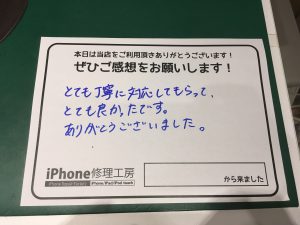 本日は当店をご利用頂きありがとうございます！
ぜひご感想をお願いします！
とても丁寧に対応してもらって、
とても良かったです。
ありがとうございました。
iPhone修理工房
iPhone Repair Factory iPhone/iPad/iPod touch
から来ました